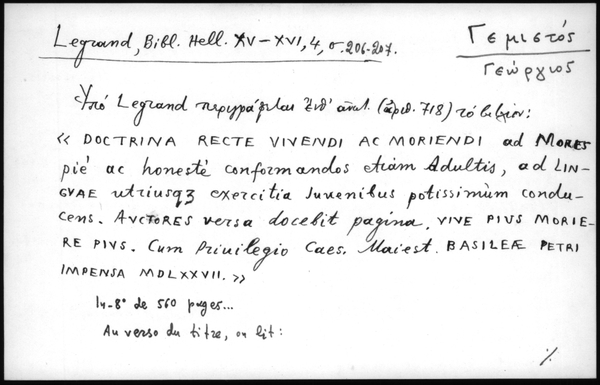 Legrand, Bibl. Hell. XV–XVI, 4, σ. 206-207.
Γεμιστός
Γεώργιος
Ὑπό Legrand περιγράφεται ἐνθ' ἀνωτ. (ἀριθ. 718) τό βιβλίον:
« DOCTRINA RECTE VIVENDI AC MORIENDI ad MORES
pié ac honesté conformandos etiam Adultis, ad LIN-
GVAE utriusqꝫ exercitia Iuvenibus potissimùm condu-
cens. AVCTORES versa docebit pagina. VIVE PIVS MORIE-
RE PIVS. Cum Priuilegio Caes. Maiest. BASILEÆ PETRI
IMPENSA MDLXXVII. »
In-8° de 560 pages...
Au verso du titre, on lit:
⁒